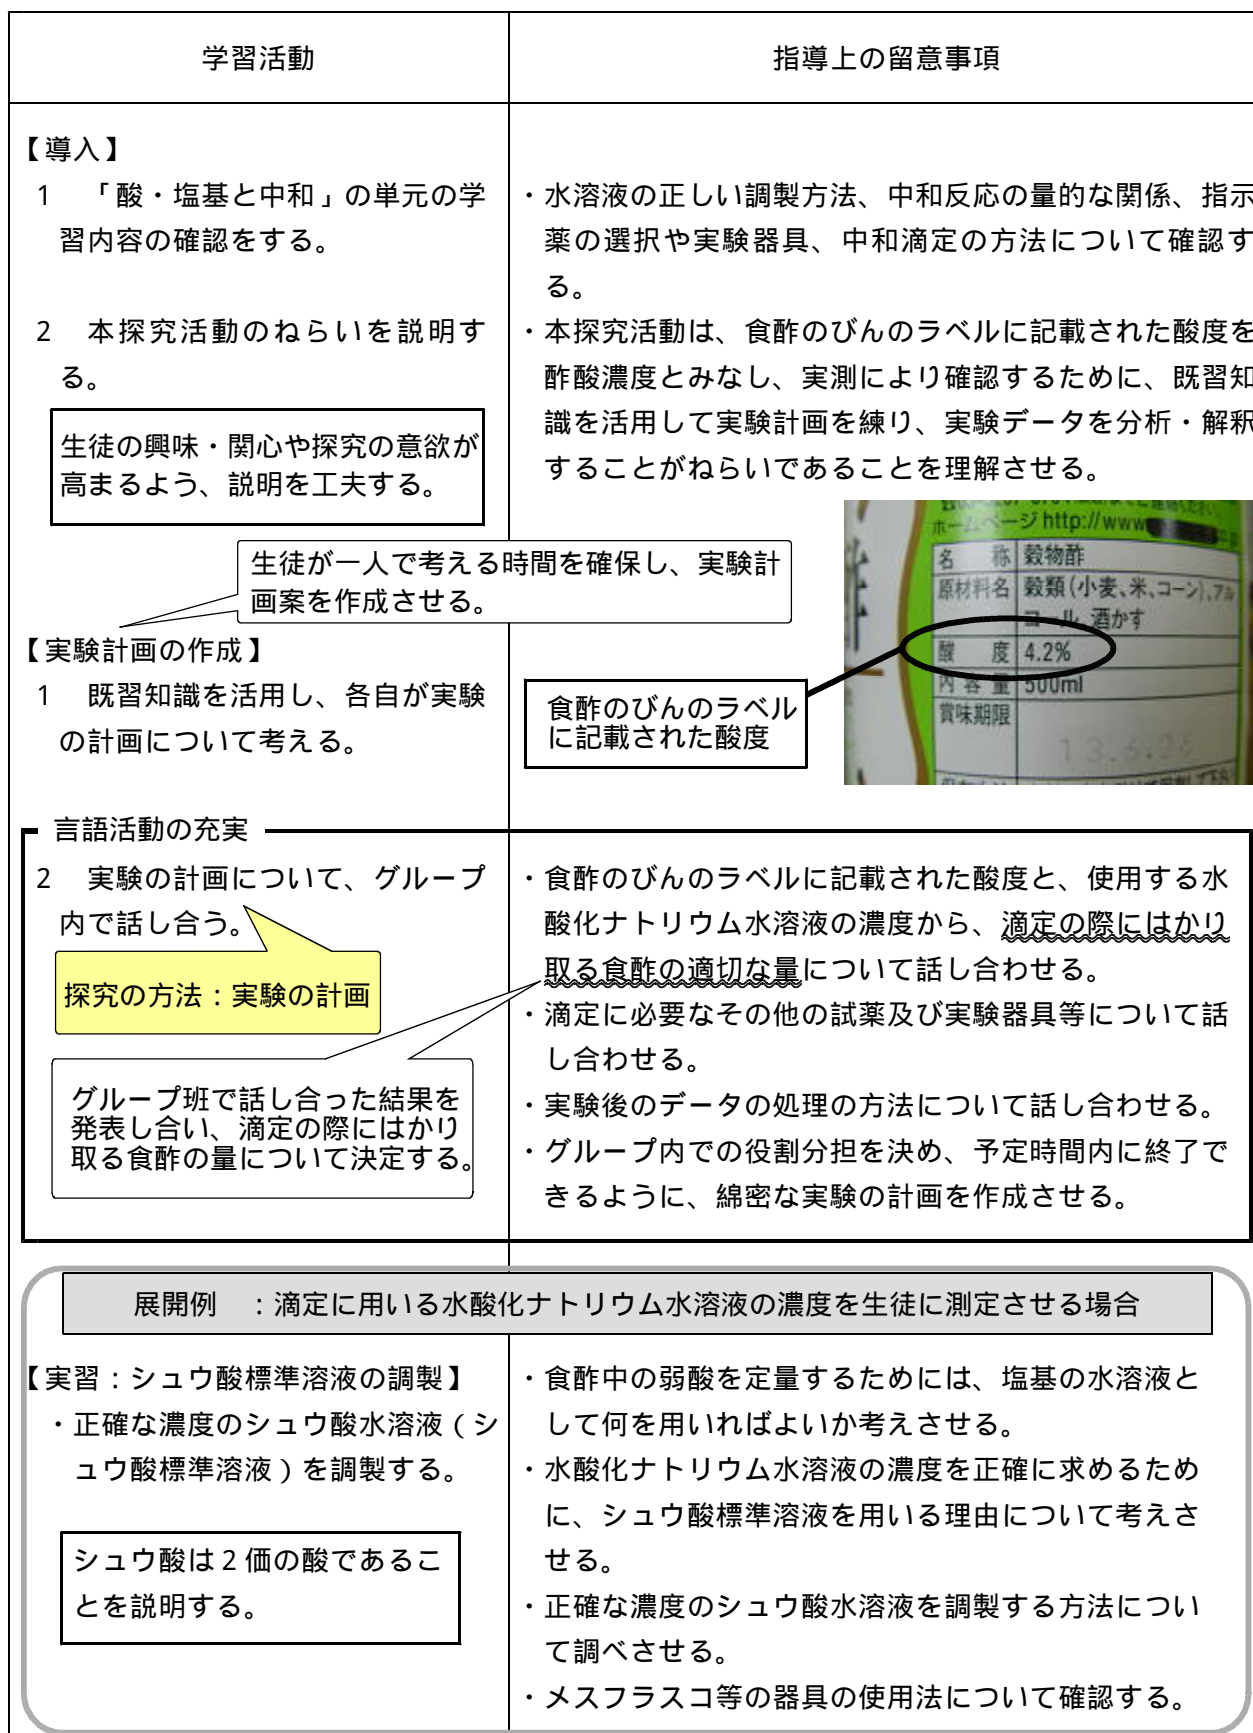 学習活動
指導上の留意事項
【導入】
1 「酸・塩基と中和」の単元の学
習内容の確認をする。
・水溶液の正しい調製方法、中和反応の量的な関係、指示
薬の選択や実験器具、中和滴定の方法について確認す
る。
2 本探究活動のねらいを説明す
る。
・本探究活動は、食酢のびんのラベルに記載された酸度を
酢酸濃度とみなし、実測により確認するために、既習知
識を活用して実験計画を練り、実験データを分析・解釈
することがねらいであることを理解させる。
生徒の興味・関心や探究の意欲が
高まるよう、説明を工夫する。
生徒が一人で考える時間を確保し、実験計
画案を作成させる。
ホームページ http://www
名称 穀物酢
原材料名 穀類(小麦、米、コーン)、アル
コール、酒かす
酸度 4.2%
内容量 500ml
賞味期限
13.6.26
食酢のびんのラベル
に記載された酸度
【実験計画の作成】
1 既習知識を活用し、各自が実験
の計画について考える。
言語活動の充実
2 実験の計画について、グループ
内で話し合う。
探究の方法：実験の計画
グループ班で話し合った結果を
発表し合い、滴定の際にはかり
取る食酢の量について決定する。
・食酢のびんのラベルに記載された酸度と、使用する水
酸化ナトリウム水溶液の濃度から、滴定の際にはかり
取る食酢の適切な量について話し合わせる。
・滴定に必要なその他の試薬及び実験器具等について話
し合わせる。
・実験後のデータの処理の方法について話し合わせる。
・グループ内での役割分担を決め、予定時間内に終了で
きるように、綿密な実験の計画を作成させる。
展開例 ：滴定に用いる水酸化ナトリウム水溶液の濃度を生徒に測定させる場合
【実習：シュウ酸標準溶液の調製】
・正確な濃度のシュウ酸水溶液（シ
ュウ酸標準溶液）を調製する。
シュウ酸は2価の酸であるこ
とを説明する。
・食酢中の弱酸を定量するためには、塩基の水溶液と
して何を用いればよいか考えさせる。
・水酸化ナトリウム水溶液の濃度を正確に求めるため
に、シュウ酸標準溶液を用いる理由について考えさ
せる。
・正確な濃度のシュウ酸水溶液を調製する方法につい
て調べさせる。
・メスフラスコ等の器具の使用法について確認する。